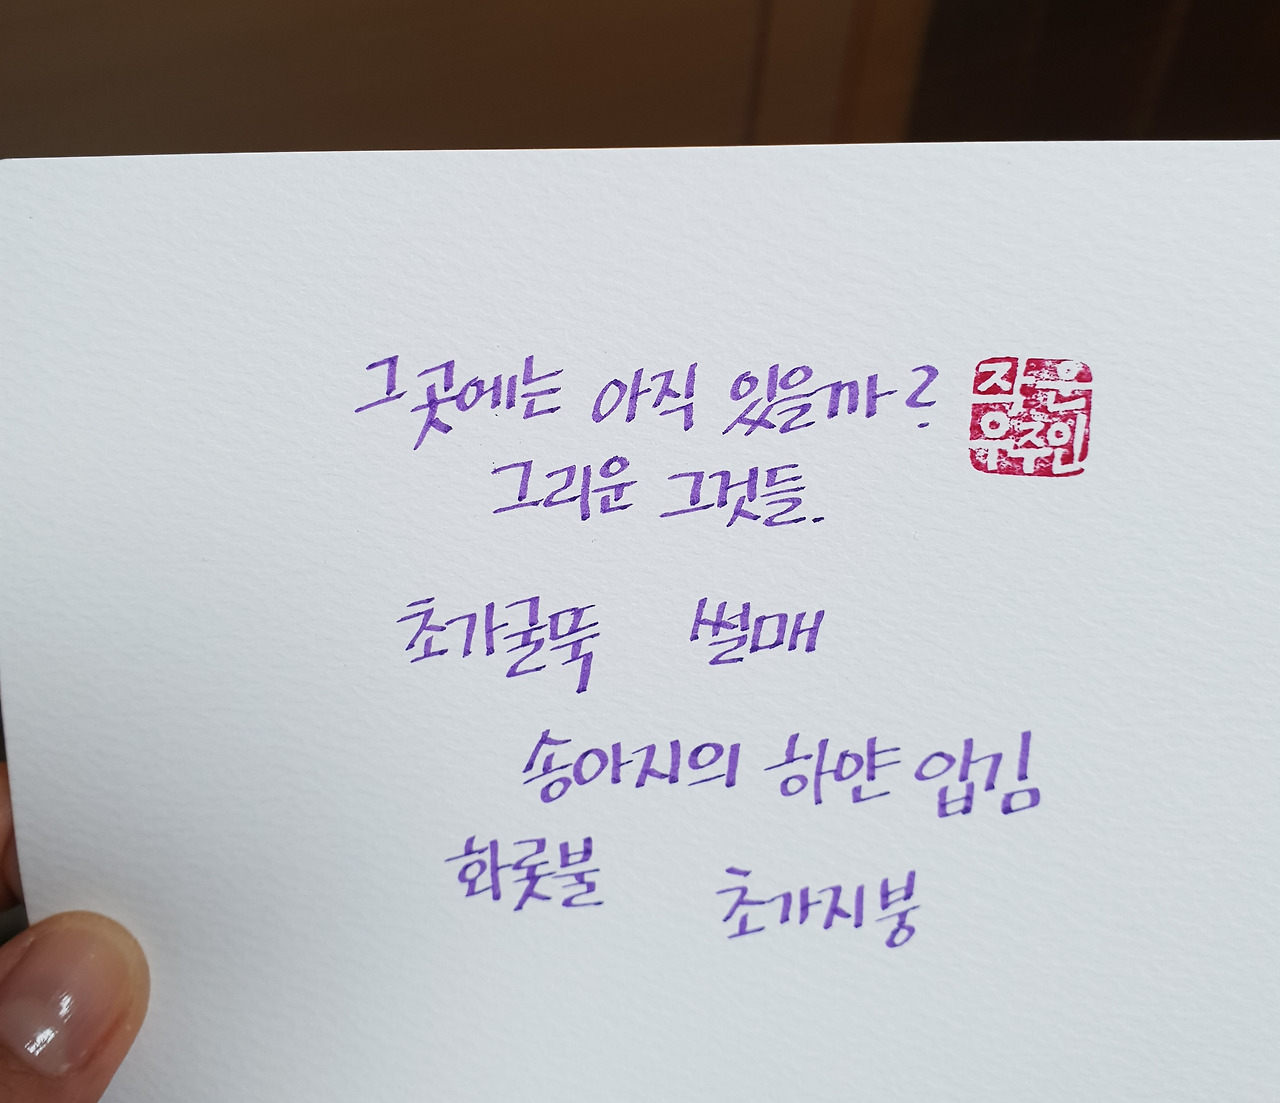 그곳에는 아직 있을까?
작은
우주인
그리운 그것들.
초가굴뚝 썰매
송아지의 하얀 입김
화롯불
초가지붕